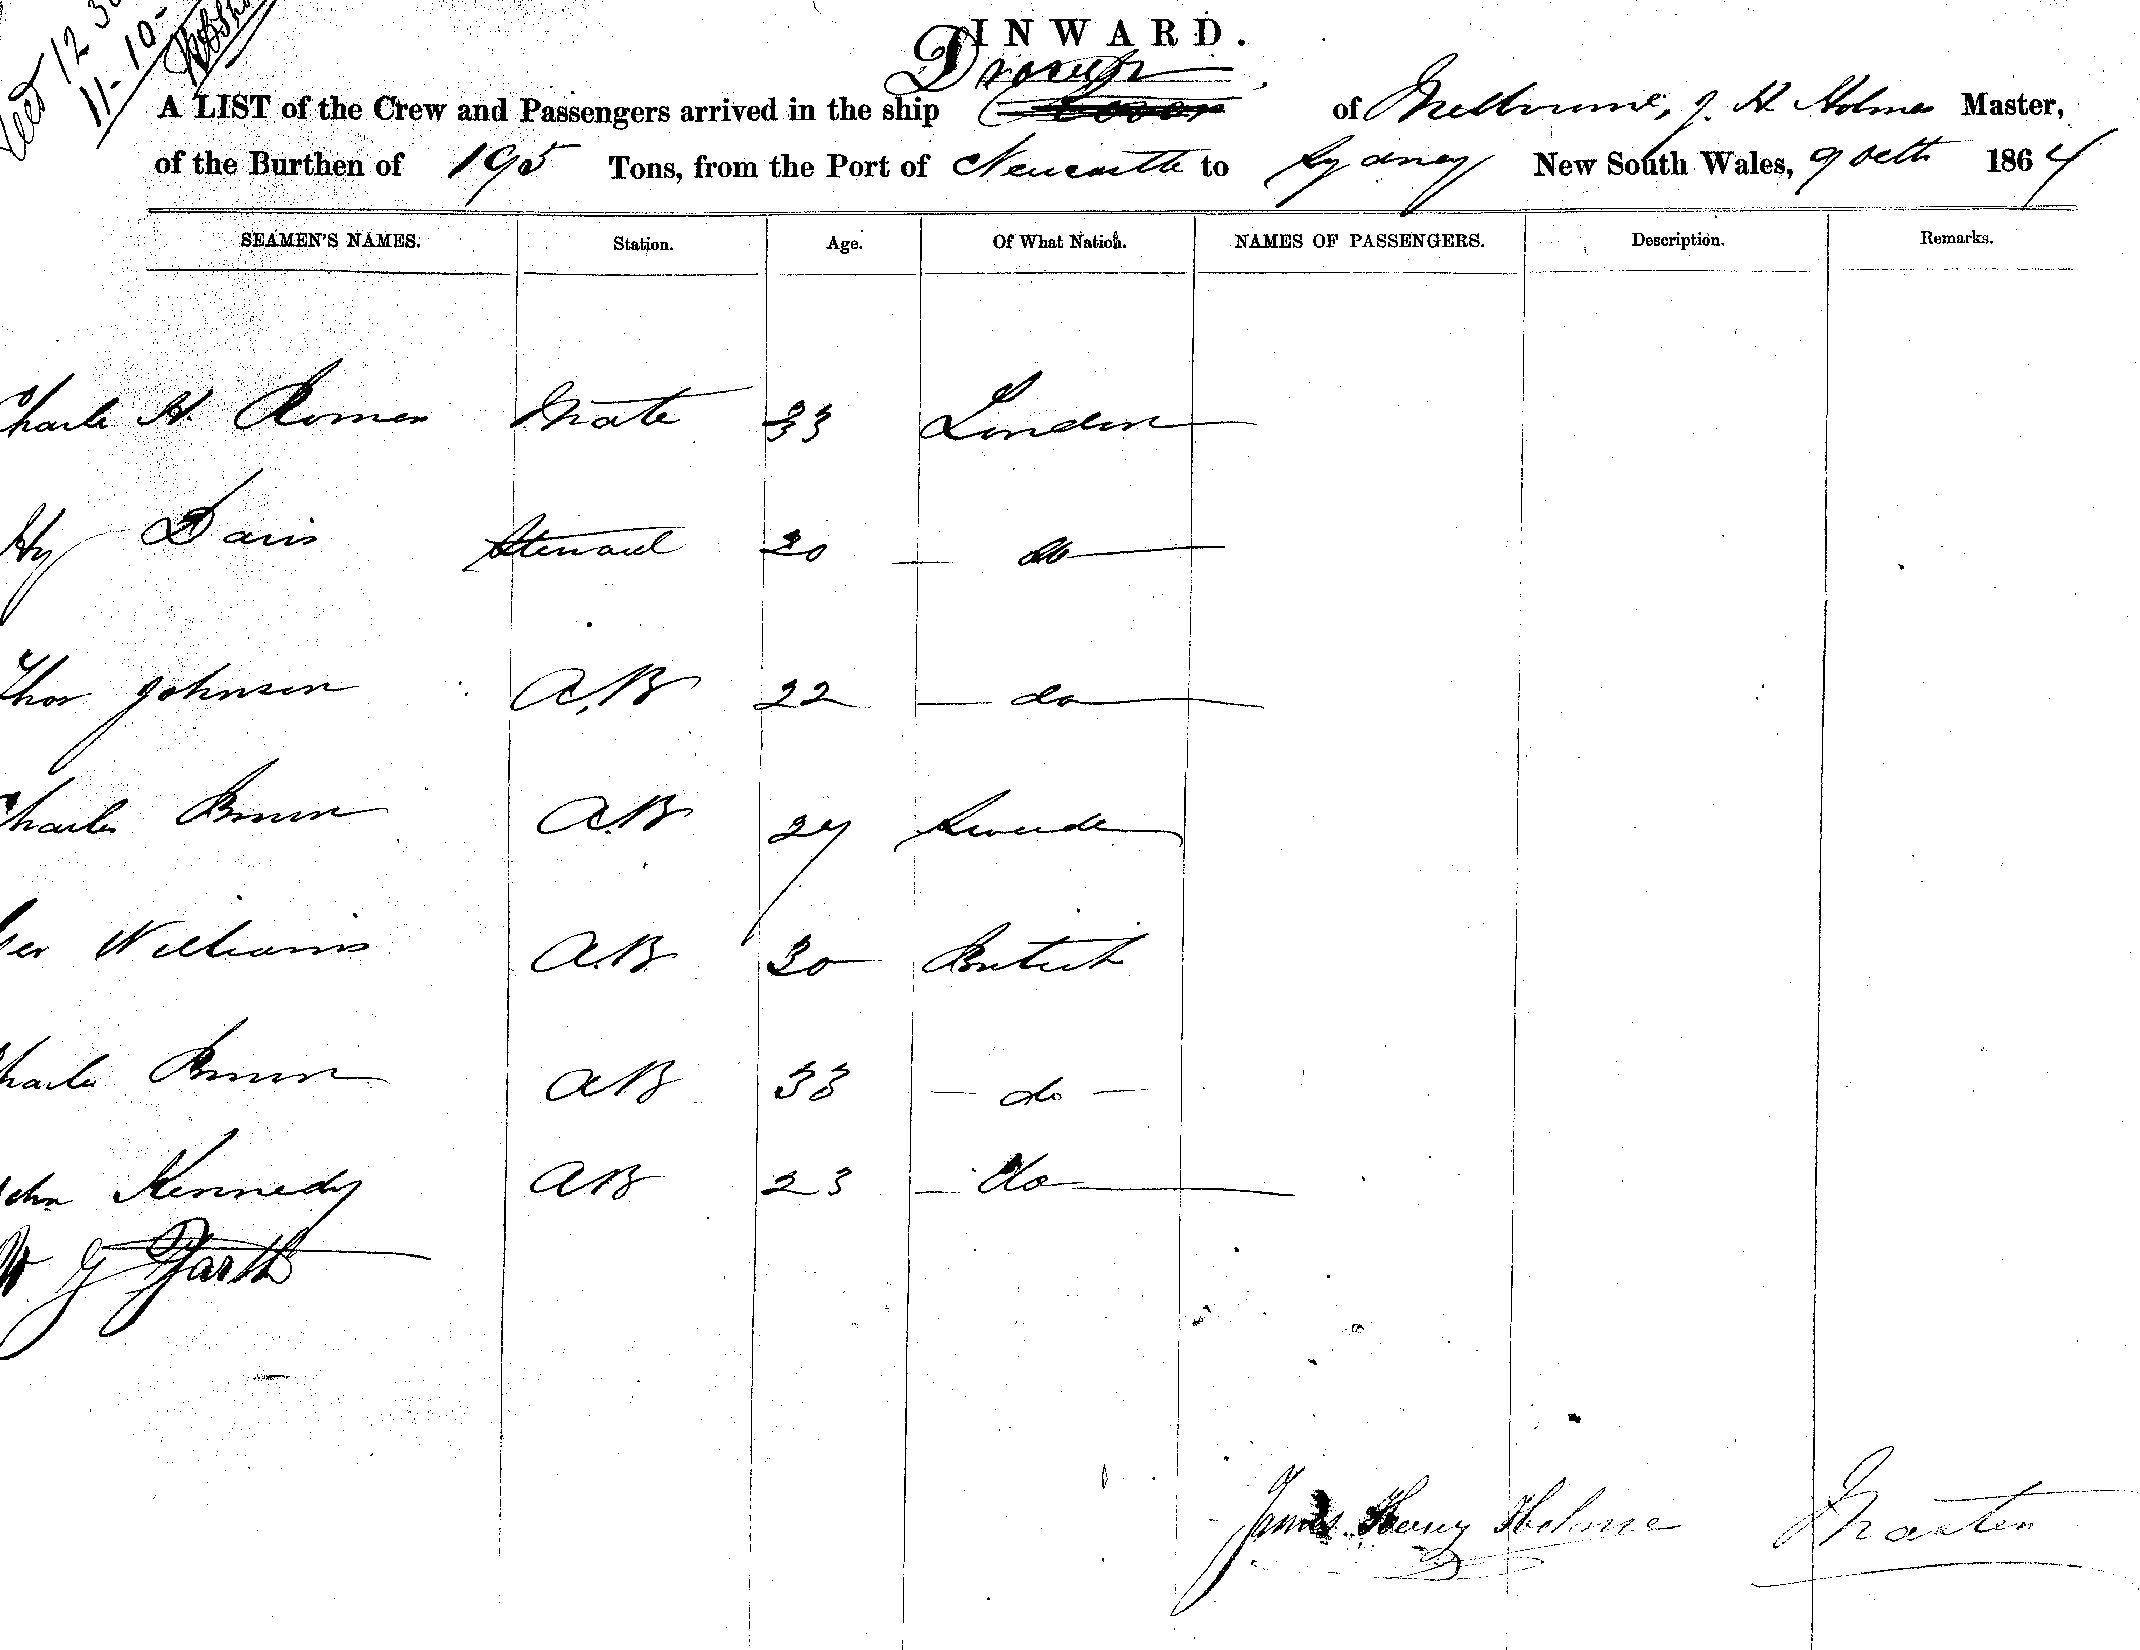 12 30
11-10-
INWARD.
A LIST of the Crew and Passengers arrived in the ship of Melbourne, J. H Holmes Master,
of the Burthen of 195 Tons, from the Port of Newcastle to Sydney New South Wales, 9 Octr 1864
SEAMEN'S NAMES. Station. Age. Of What Nation. NAMES OF PASSENGERS. Description. Remarks.
Charle H. Mate 33 London
Hy Davis Steward 20 do
Thos Johnson A.B 22 do
Charles Brown A.B 27 Swede
Geo Williams A.B 30 British
Charles Brown AB 33 do
John Kennedy AB 23 do
W G Garth
James Henry Holmes Master